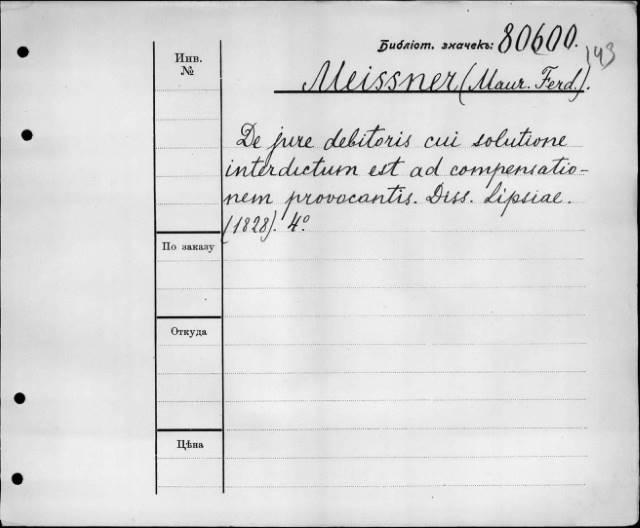 Библіот. значекъ: 80600.
143
Инв.
№
Meissner (Maur. Ferd.).
De jure debitoris cui solutione
interdictum est ad compensatio-
nem provocantis. Diss. Lipsiae.
(1828). 4º
По заказу
Откуда
Цѣна